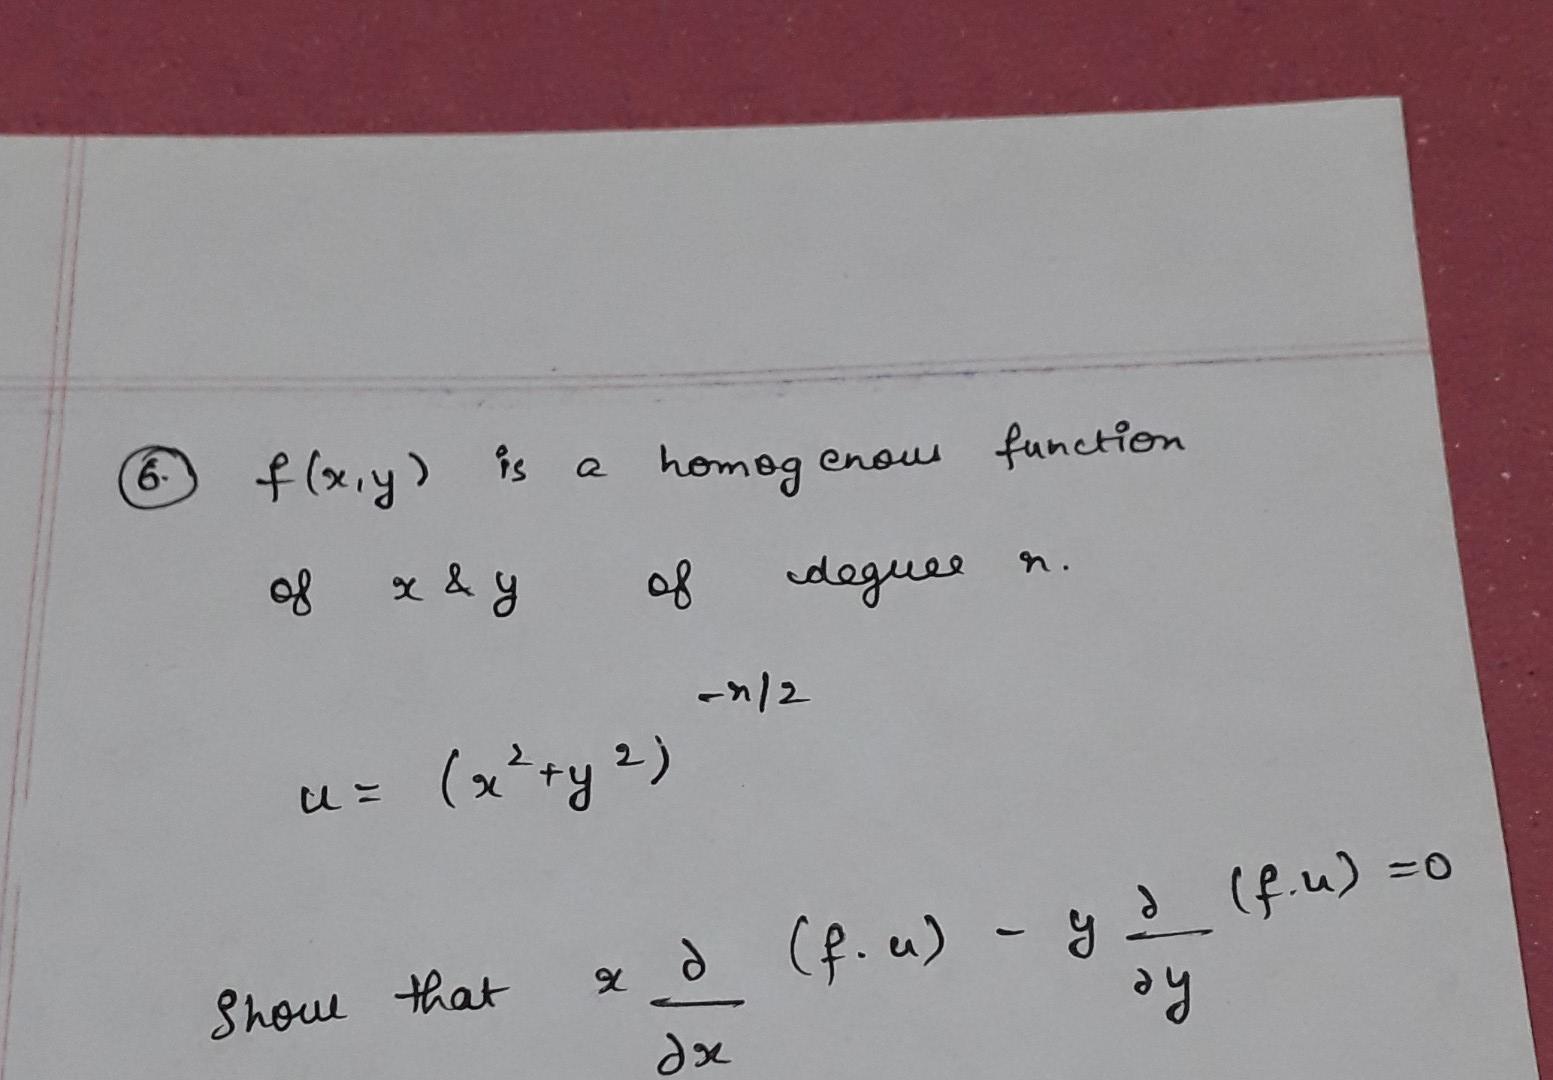 6. f(x,y) is a homogenous function
of x & y of degree n.
u = (x²+y²)^(-n/2)
Show that x ∂/∂x (f.u) - y ∂/∂y (f.u) = 0